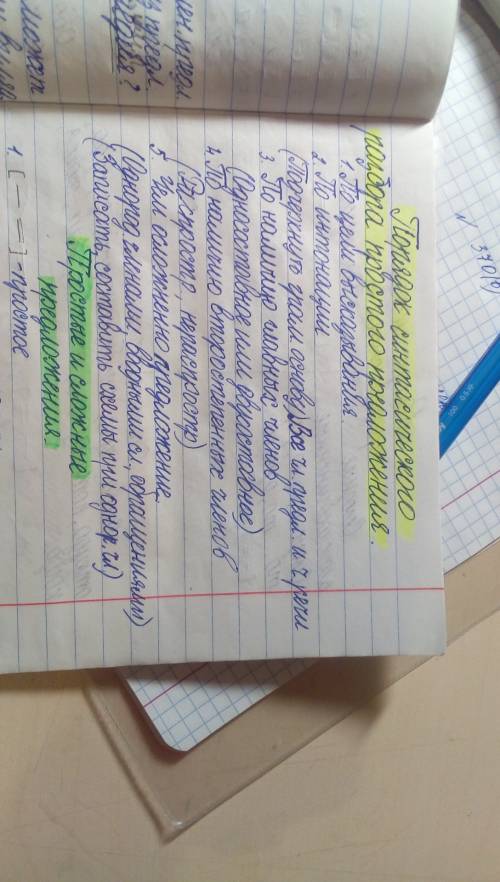 Порядок синтаксического
разбора простого предложения.
1. По цели высказывания.
2. По интонации
(Подчеркнуть грам. основу) Все чл. предл. и ч. речи
3. По наличию главных членов
(Односоставное или двусоставное)
4. По наличию второстепенных членов
(Распростр., нераспростр)
5. Чем осложнено предложение
(Однород. членами, вводными сл., обращениями)
(Записать, составить схемы при однор. чл)
Простые и сложные
предложения.
1. [— =] - простое
N 370(б)